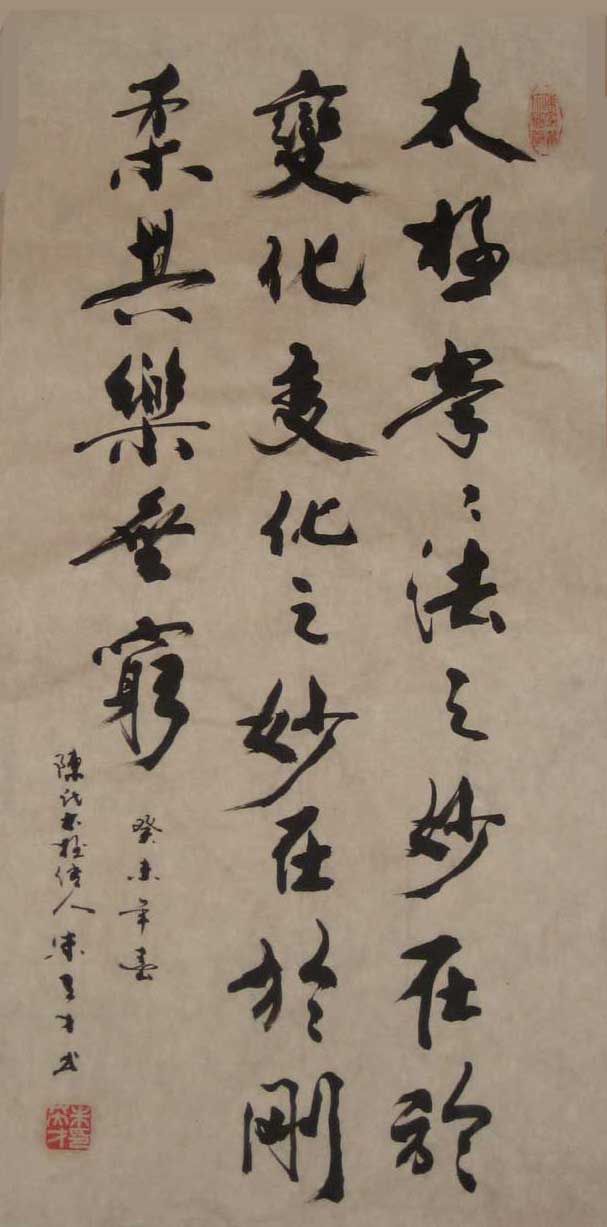 太極拳々法之妙在於
變化变化之妙在於剛
柔其樂無窮
癸未年
陳氏太极传人朱天才